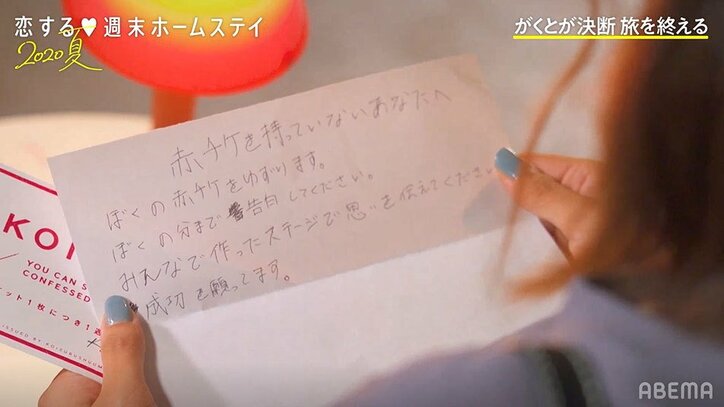 恋する♥週末ホームステイ
2020夏
がくとが決断 旅を終える
赤チケを持っていないあなたへ
ぼくの赤チケをゆずります。
ぼくの分まで告白してください。
みんなで作ったステージで思いを伝えてください
成功を願ってます。
KOI
YOU CAN S
CONFESSED
ケット1枚につき1週
ISSUED BY KOISURUSHUUM
ABEMA